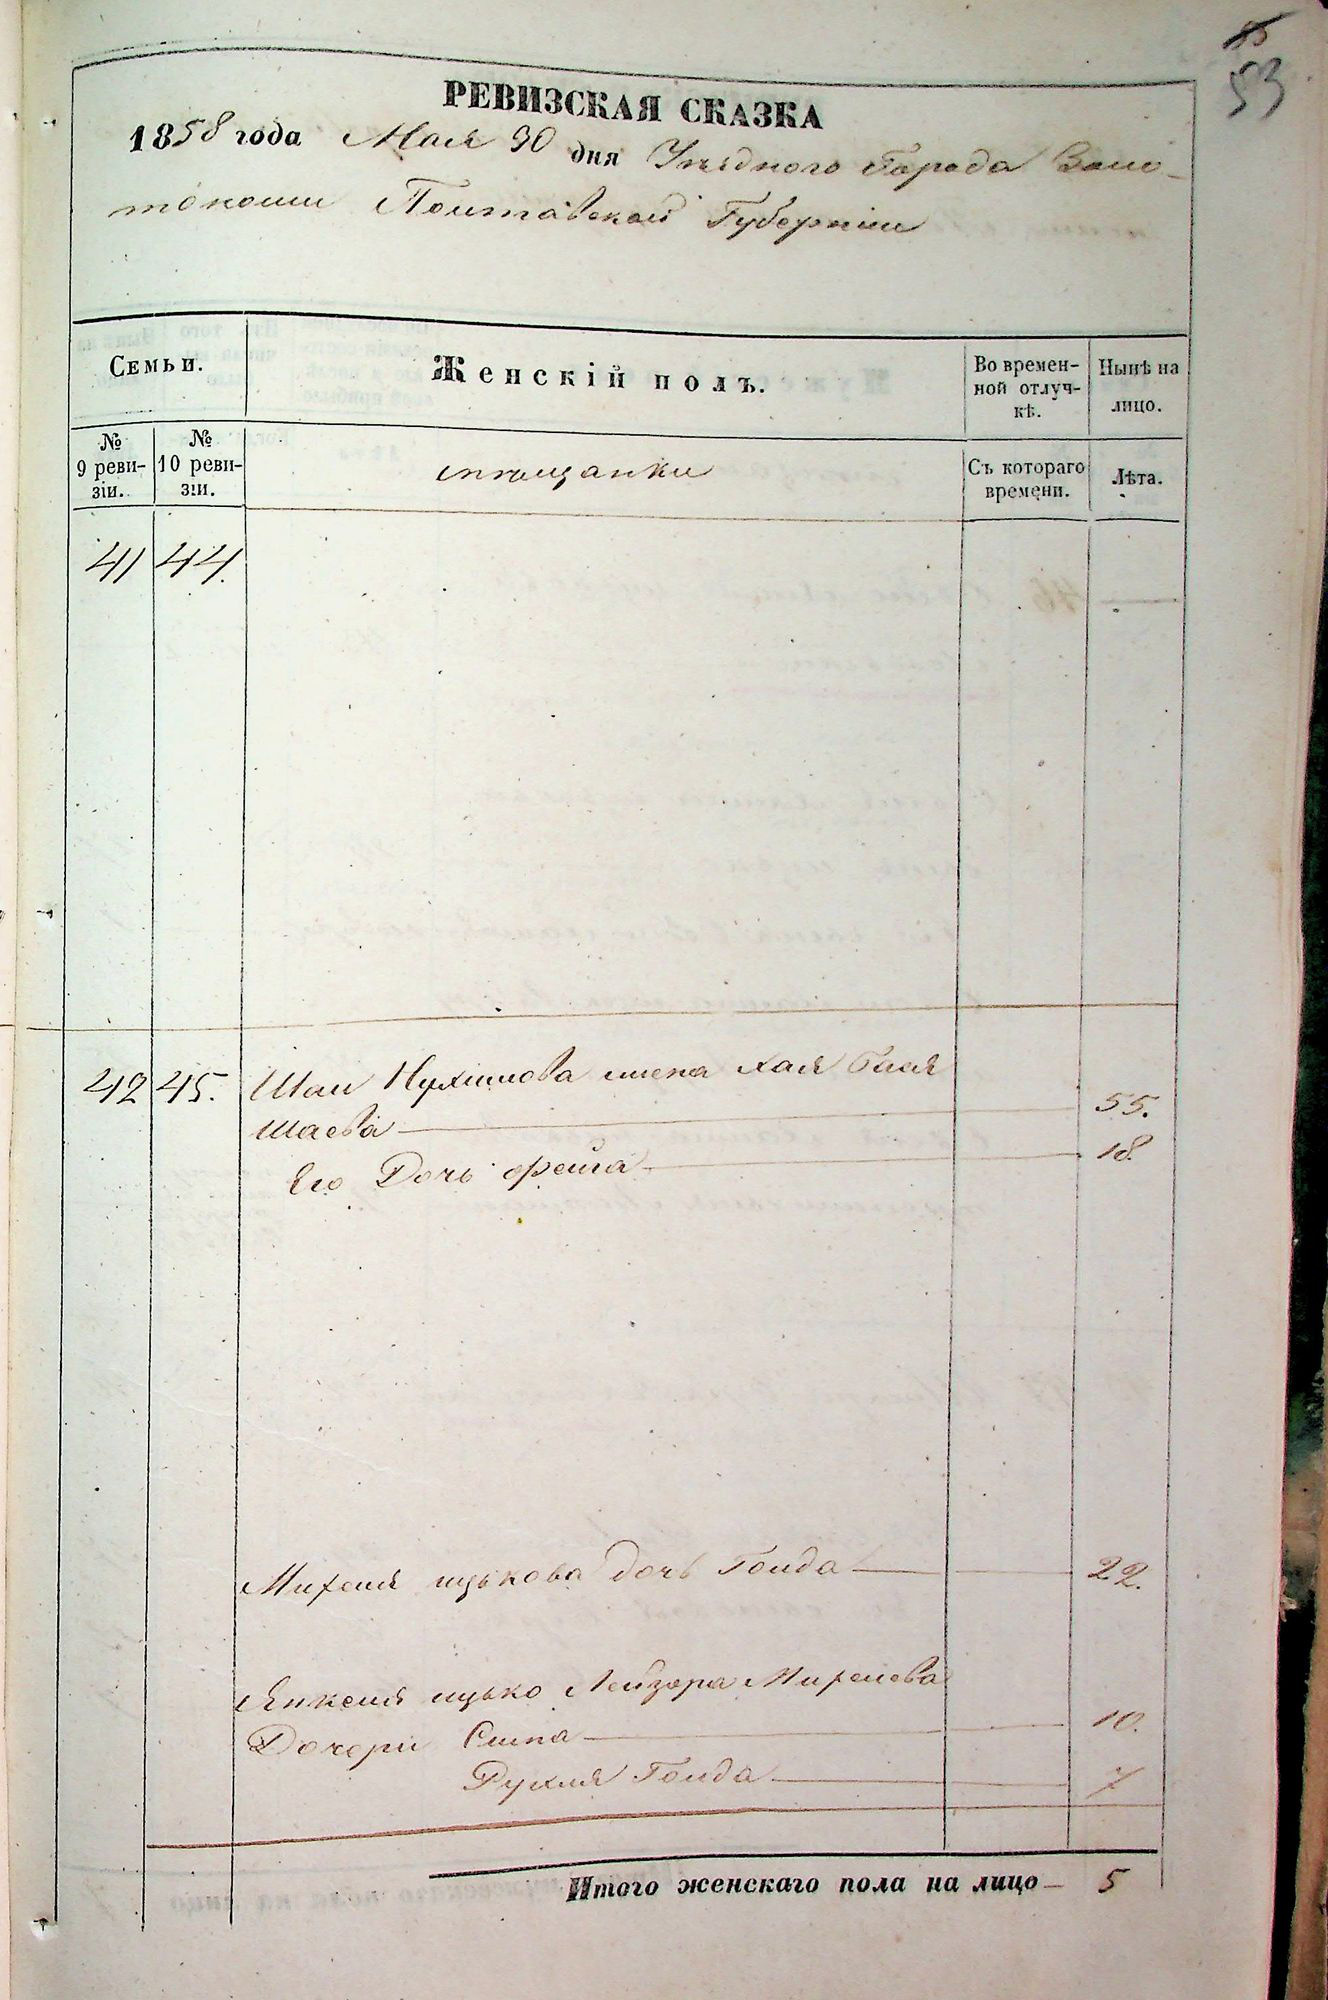 53
РЕВИЗСКАЯ СКАЗКА
1858 года Мая 30 дня Уѣзднаго Города Золо-
тоноши Полтавской Губерніи
Семьи.
Женскій полъ.
Во времен-
ной отлуч-
кѣ.
Нынѣ на
лицо.
№
9 реви-
зіи.
№
10 реви-
зіи.
мѣщанки
Съ котораго
времени.
Лѣта.
41 44.
42 45. Шаи Нухимова жена Хая Бася
Шаева 55.
Его Дочь Фейга 18.
Михеля ицькова дочь Голда 22.
Янкеля ицько Лейзора Михелева
Дочери Сипа 10.
Рухля Голда 7
Итого женскаго пола на лицо 5